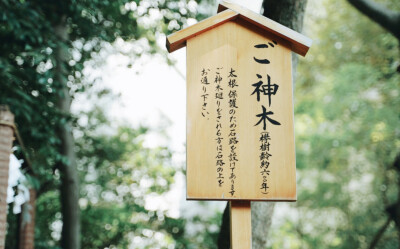 ご神木(樹齢約六〇〇年)
太根保護のため石路を設けてあります
ご神木廻りをされる方は石路の上を
お通り下さい。